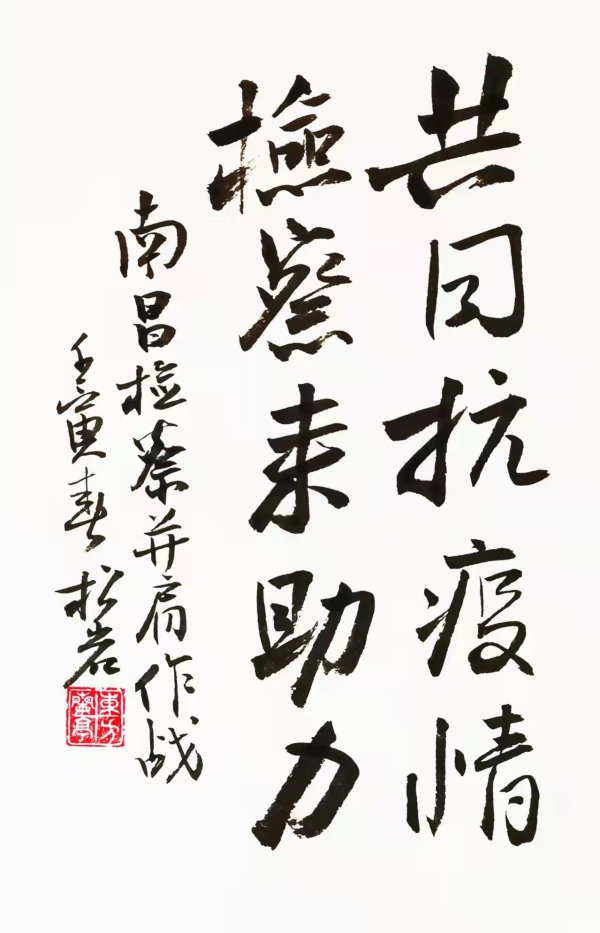 共同抗疫情
檢察来助力
南昌检察并肩作战
壬寅春松岩